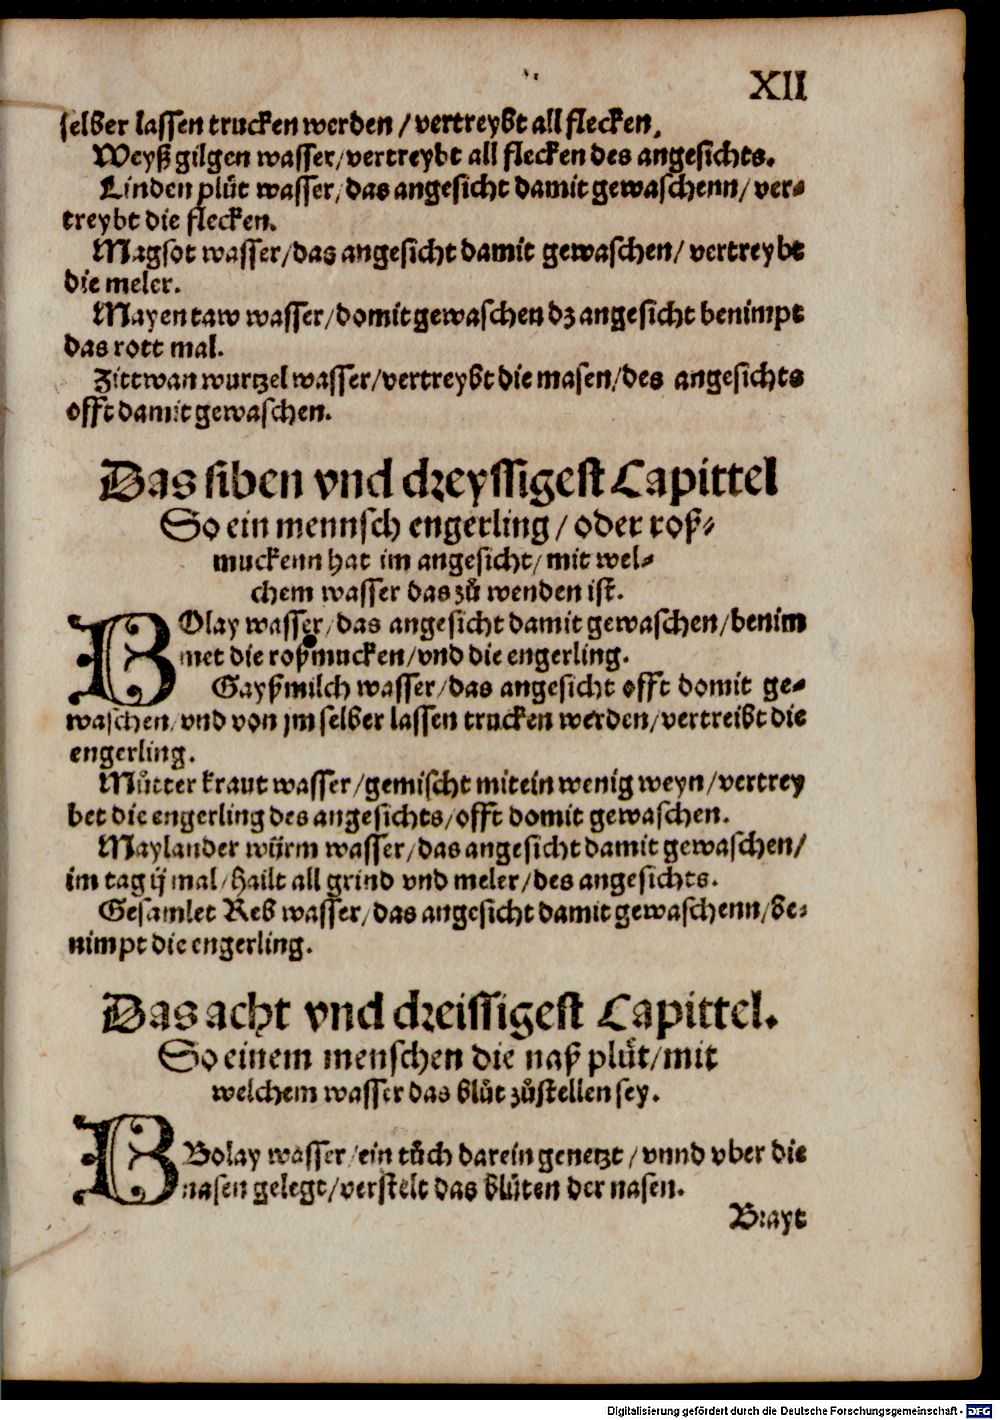 XII
selber lassen trucken werden / vertreybt all flecken.
Weyß gilgen wasser / vertreybt all flecken des angesichts.
Linden plůt wasser / das angesicht damit gewaschenn / ver⸗
treybt die flecken.
Magsot wasser / das angesicht damit gewaschen / vertreybt
die meler.
Mayen taw wasser / domit gewaschen dz angesicht benimpt
das rott mal.
Zittwan wurtzel wasser / vertreybt die masen / des angesichts
offt damit gewaschen.
Das siben vnd dreyssigest Capittel
So ein mennsch engerling / oder roß⸗
muckenn hat im angesicht / mit wel⸗
chem wasser das zů wenden ist.
BOlay wasser / das angesicht damit gewaschen / benim
met die roßmucken / vnd die engerling.
Gayßmilch wasser / das angesicht offt domit ge⸗
waschen / vnd von jm selber lassen trucken werden / vertreibt die
engerling.
Můtter kraut wasser / gemischt mit ein wenig weyn / vertrey
bet die engerling des angesichts / offt domit gewaschen.
Maylander würm wasser / das angesicht damit gewaschen /
im tag ij mal / hailt all grind vnd meler / des angesichts.
Gesamlet Reb wasser / das angesicht damit gewaschenn / be⸗
nimpt die engerling.
Das acht vnd dreissigest Capittel.
So einem menschen die naß plůt / mit
welchem wasser das blůt zůstellen sey.
BBolay wasser / ein tůch darein genetzt / vnnd vber die
nasen gelegt / verstelt das blůten der nasen.
Brayt
Digitalisierung gefördert durch die Deutsche Forschungsgemeinschaft - DFG